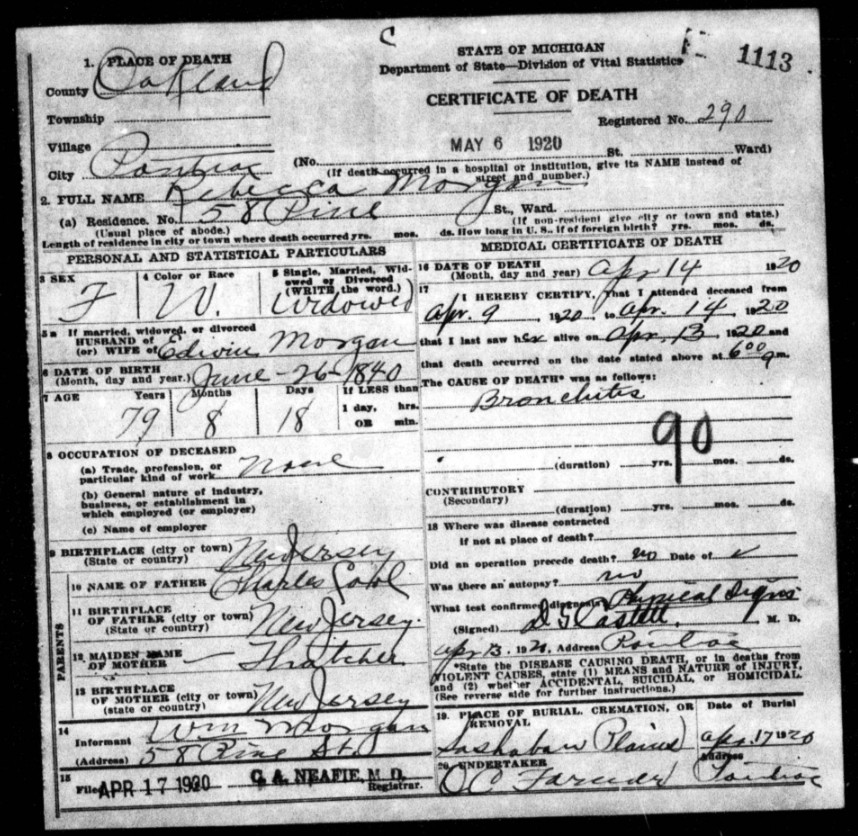 C
STATE OF MICHIGAN
Department of State—Division of Vital Statistics
1113
CERTIFICATE OF DEATH
Registered No. 290
MAY 6 1920
1. PLACE OF DEATH
County Oakland
Township
Village
City Pontiac
(No. St. Ward)
(If death occurred in a hospital or institution, give its NAME instead of street and number.)
2. FULL NAME Rebecca Morgan
(a) Residence. No. 58 Pine St., Ward.
(Usual place of abode.) (If non-resident give city or town and state.)
Length of residence in city or town where death occurred yrs. mos. ds. How long in U. S., if of foreign birth? yrs. mos. ds.
PERSONAL AND STATISTICAL PARTICULARS
3 SEX F
4 Color or Race W.
5 Single, Married, Widowed or Divorced (WRITE the word.) Widowed
5a If married, widowed, or divorced
HUSBAND of
(or) WIFE of Edwin Morgan
6 DATE OF BIRTH
(Month, day and year.) June-26-1840
7 AGE Years Months Days If LESS than
1 day, hrs.
OR min.
79 8 18
8 OCCUPATION OF DECEASED
(a) Trade, profession, or
particular kind of work None
(b) General nature of industry,
business, or establishment in
which employed (or employer)
(c) Name of employer
9 BIRTHPLACE (city or town)
(State or country) New Jersey
PARENTS
10 NAME OF FATHER Charles
11 BIRTHPLACE
OF FATHER (city or town)
(State or country) New Jersey.
12 MAIDEN NAME
OF MOTHER — Thatcher
13 BIRTHPLACE
OF MOTHER (city or town)
(state or country) New Jersey
14
Informant Wm Morgan
(Address) 58 Pine St.
15
Filed APR 17 1920 C. A. NEAFIE, M. D.
Registrar.
MEDICAL CERTIFICATE OF DEATH
16 DATE OF DEATH
(Month, day and year) Apr 14 1920
17 I HEREBY CERTIFY, That I attended deceased from
Apr. 9 1920, to Apr. 14, 1920
that I last saw her alive on Apr. 13 1920 and
that death occurred on the date stated above at 6 00 m.
The CAUSE OF DEATH* was as follows:
Bronchitis
90
(duration) yrs. mos. ds.
CONTRIBUTORY
(Secondary)
(duration) yrs. mos. ds.
18 Where was disease contracted
if not at place of death?
Did an operation precede death? no Date of
Was there an autopsy? no
What test confirmed diagnosis? Physical Signs
(Signed) M. D.
1920, Address Pontiac
*State the DISEASE CAUSING DEATH, or in deaths from
VIOLENT CAUSES, state (1) MEANS and NATURE of INJURY,
and (2) whether ACCIDENTAL, SUICIDAL, or HOMICIDAL.
(See reverse side for further instructions.)
19. PLACE OF BURIAL, CREMATION, OR REMOVAL Date of Burial
Sashabaw Plains Apr. 17 1920
20. UNDERTAKER Address
O C Farmer Pontiac